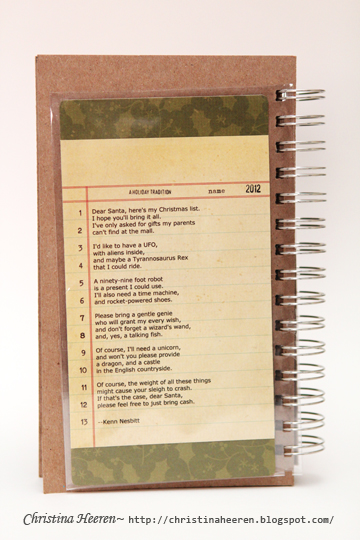 A HOLIDAY TRADITION name 2012
1 Dear Santa, here's my Christmas list.
I hope you'll bring it all.
2 I've only asked for gifts my parents
can't find at the mall.
3 I'd like to have a UFO,
with aliens inside,
4 and maybe a Tyrannosaurus Rex
that I could ride.
5 A ninety-nine foot robot
is a present I could use.
6 I'll also need a time machine,
and rocket-powered shoes.
7 Please bring a gentle genie
who will grant my every wish,
8 and don't forget a wizard's wand,
and, yes, a talking fish.
9 Of course, I'll need a unicorn,
and won't you please provide
10 a dragon, and a castle
in the English countryside.
11 Of course, the weight of all these things
might cause your sleigh to crash.
12 If that's the case, dear Santa,
please feel free to just bring cash.
13 --Kenn Nesbitt
Christina Heeren~ http://christinaheeren.blogspot.com/